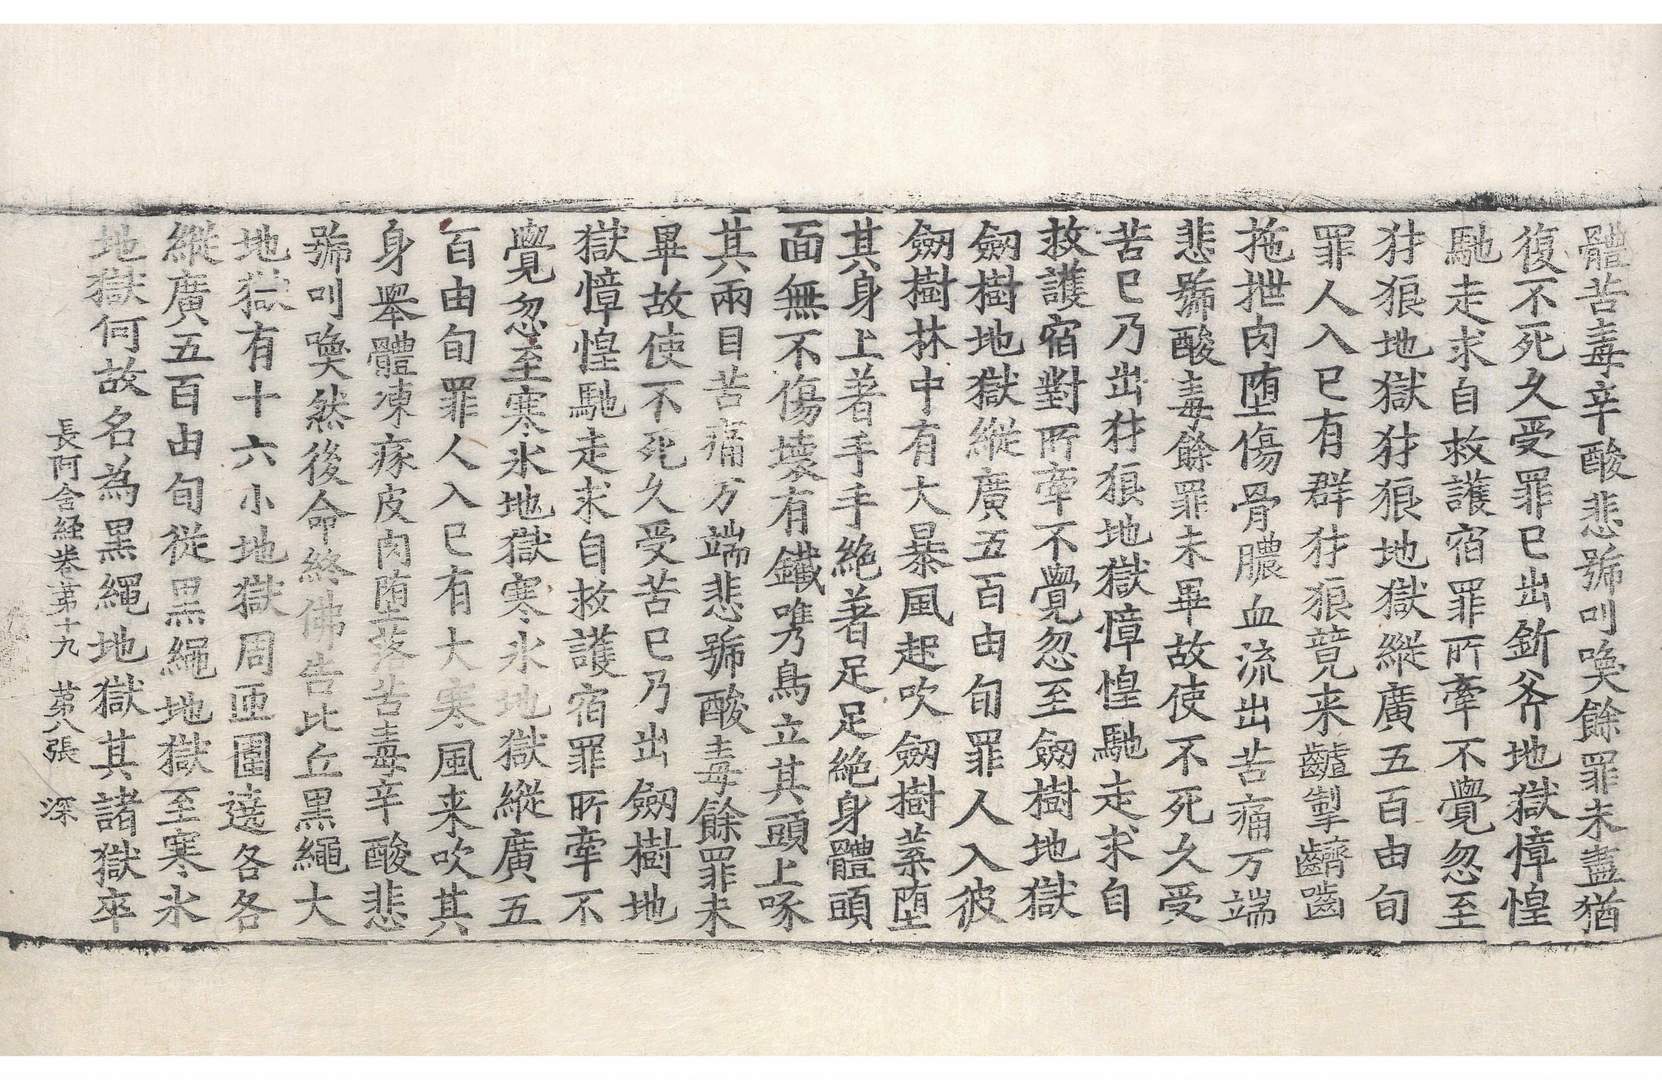 體苦毒辛酸悲號叫喚餘罪未盡猶
復不死久受罪已出釿斧地獄慞惶
馳走求自救護宿罪所牽不覺忽至
犲狼地獄犲狼地獄縱廣五百由旬
罪人入已有群犲狼竟来齟掣齩嚙
拖拽肉墮傷骨膿血流出苦痛万端
悲號酸毒餘罪未畢故使不死久受
苦已乃出犲狼地獄慞惶馳走求自
救護宿對所牽不覺忽至劒樹地獄
劒樹地獄縱廣五百由旬罪人入彼
劒樹林中有大暴風起吹劒樹葉墮
其身上著手手絶著足足絶身體頭
面無不傷壞有鐵㭰鳥立其頭上啄
其兩目苦痛万端悲號酸毒餘罪未
畢故使不死久受苦已乃出劒樹地
獄慞惶馳走求自救護宿罪所牽不
覺忽至寒氷地獄寒氷地獄縱廣五
百由旬罪人入已有大寒風来吹其
身舉體凍瘃皮肉墮落苦毒辛酸悲
號叫喚然後命終佛告比丘黑繩大
地獄有十六小地獄周匝圍遶各各
縱廣五百由旬從黑繩地獄至寒氷
地獄何故名為黑繩地獄其諸獄卒
長阿含経卷苐十九 苐八張 深